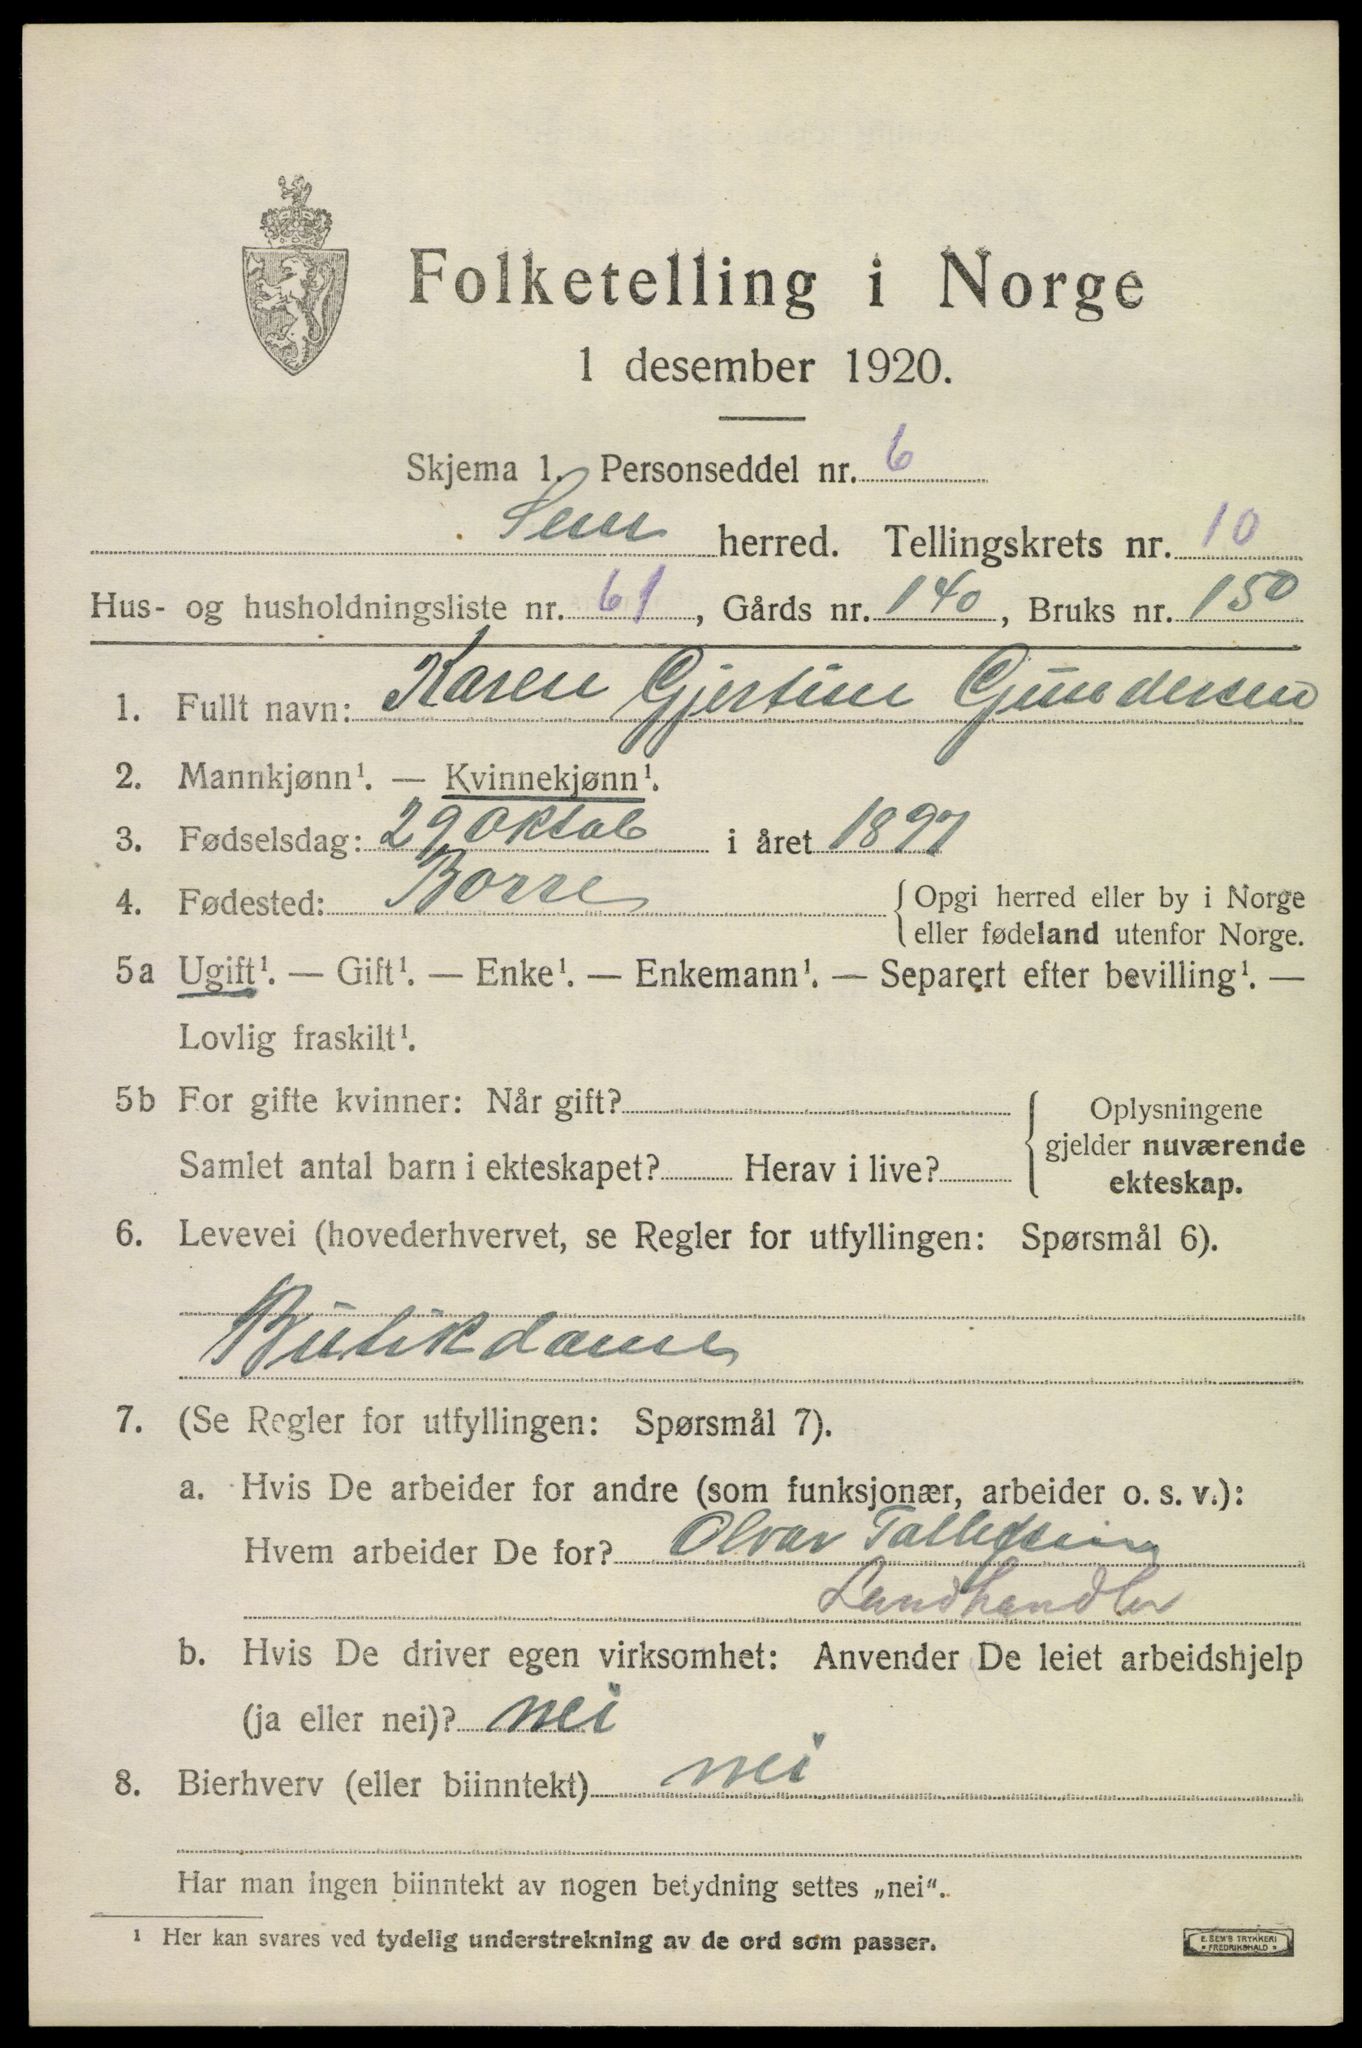 Folketelling i Norge
1 desember 1920.
Skjema 1. Personseddel nr. 6
Sem herred. Tellingskrets nr. 10
Hus- og husholdningsliste nr. 61, Gårds nr. 140, Bruks nr. 150
1. Fullt navn: Karen Gjertine Gundersen
2. Mannkjønn¹. — Kvinnekjønn¹.
3. Fødselsdag: 29 Oktob i året 1897
4. Fødested: Borre { Opgi herred eller by i Norge
eller fødeland utenfor Norge.
5a Ugift¹. — Gift¹. — Enke¹. — Enkemann¹. — Separert efter bevilling¹. —
Lovlig fraskilt¹.
5b For gifte kvinner: Når gift? { Oplysningene
gjelder nuværende
Samlet antal barn i ekteskapet? Herav i live?
ekteskap.
6. Levevei (hovederhvervet, se Regler for utfyllingen: Spørsmål 6).
Butikdame
7. (Se Regler for utfyllingen: Spørsmål 7).
a. Hvis De arbeider for andre (som funksjonær, arbeider o. s. v.):
Hvem arbeider De for? Olvar
Landhandler
b. Hvis De driver egen virksomhet: Anvender De leiet arbeidshjelp
(ja eller nei)? nei
8. Bierhverv (eller biinntekt) nei
Har man ingen biinntekt av nogen betydning settes „nei“.
¹ Her kan svares ved tydelig understrekning av de ord som passer.
E. SEM'S TRYKKERI
* FREDRIKSHALD *